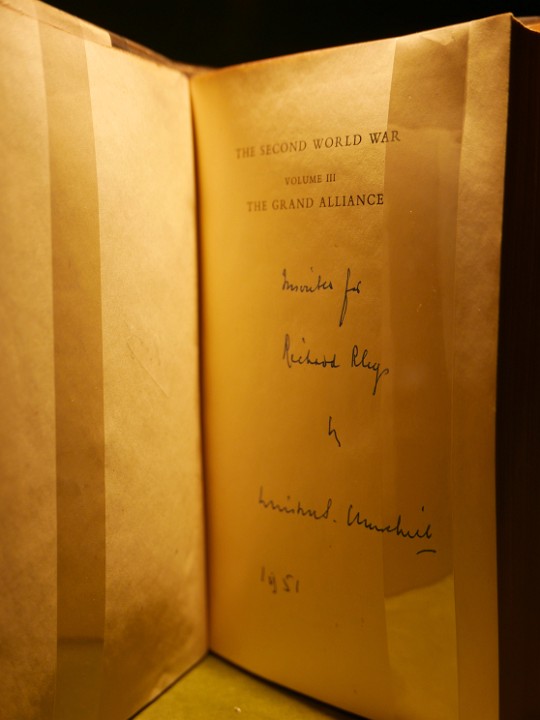 THE SECOND WORLD WAR
VOLUME III
THE GRAND ALLIANCE
Inscribed for
Richard
by
Winston S. Churchill
1951